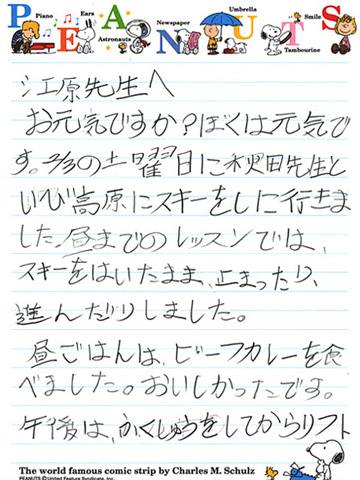 Piano
Ears
Astronauts
Newspaper
Umbrella
Smile
Tambourine
PEANUTS
江原先生へ
お元気ですか?ぼくは元気で
す。2/3の土曜日に秋田先生と
いび高原にスキーをしに行きま
した。昼までのレッスンでは、
スキーをはいたまま、止まったり、
進んだりしました。
昼ごはんは、ビーフカレーを食
べました。おいしかったです。
午後は、ふくしゅうをしてからリフト
The world famous comic strip by Charles M. Schulz
PEANUTS © United Feature Syndicate, Inc.